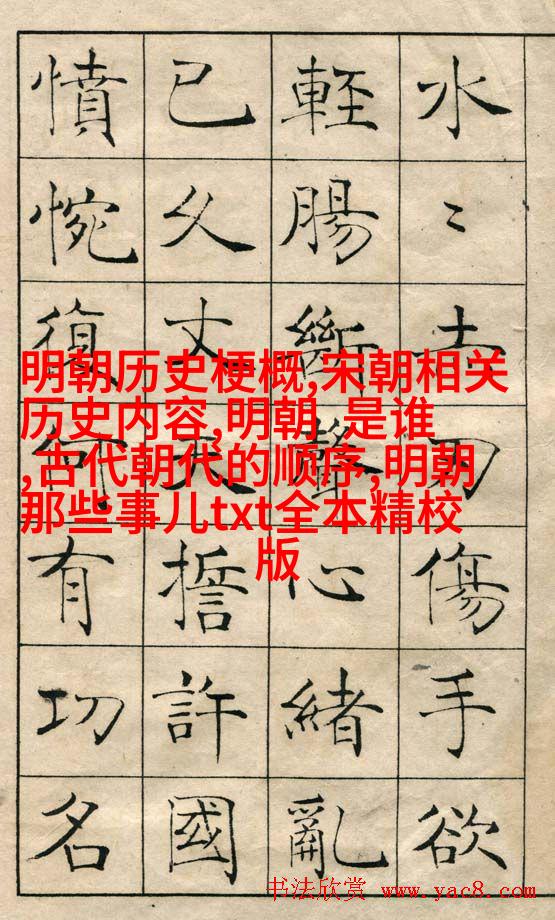 水〻赤刃傷手欲
輕腸斷聲心緒亂
已久丈夫誓許國
憤惋復何有功名
明朝历史梗概,宋朝相关
历史内容,明朝 是谁
,古代朝代的顺序,明朝
那些事儿txt全本精校
版
书法欣赏 www.yac8.com